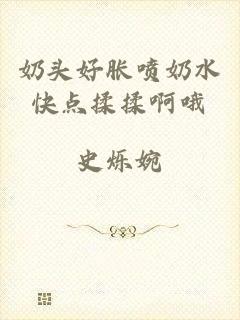 奶头好胀喷奶水
快点揉揉啊哦
史烁婉